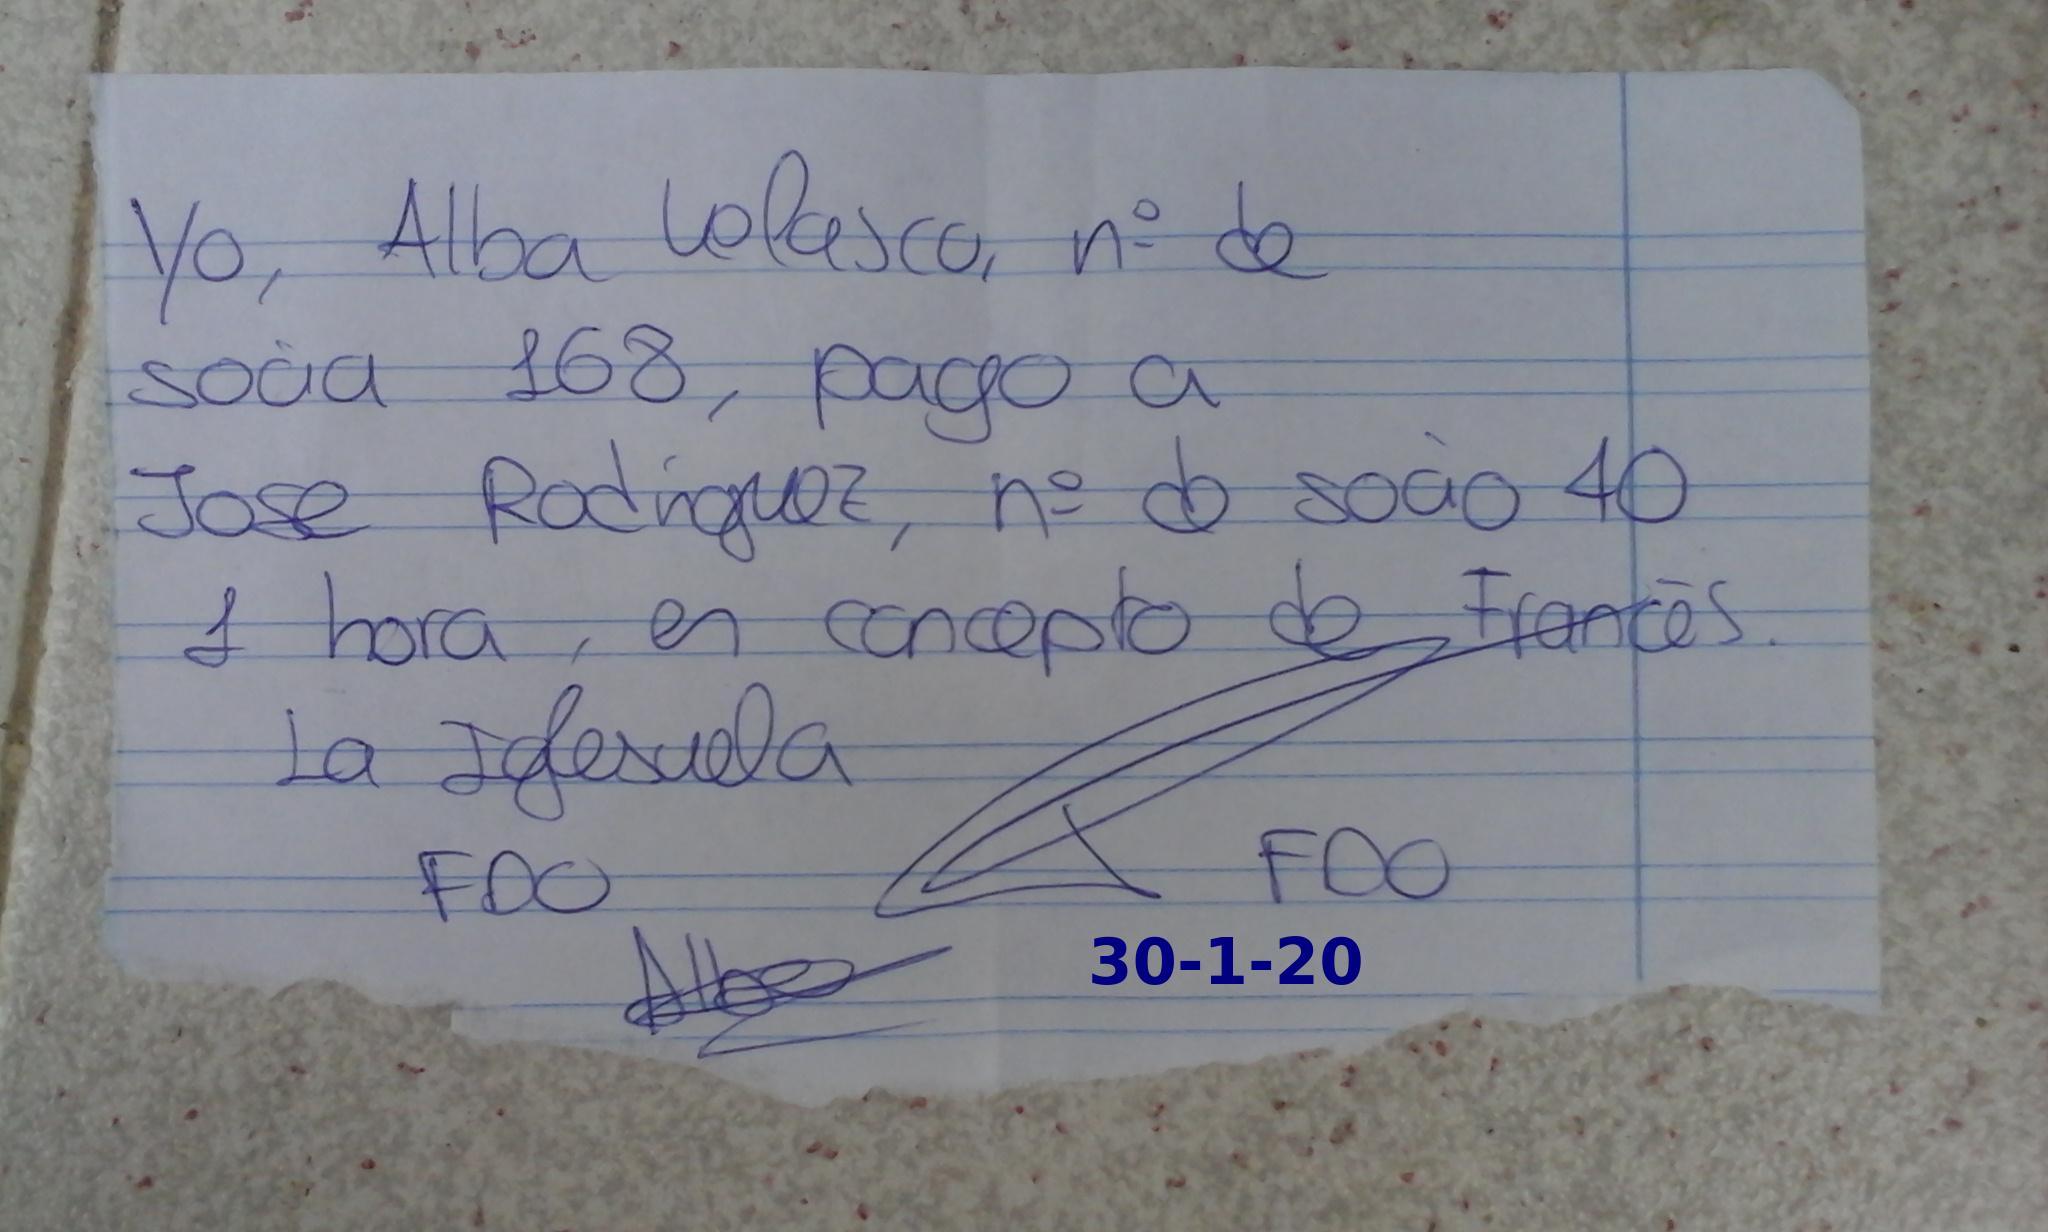 Yo, Alba Velasco, nº de
socia 168, pago a
Jose Rodríguez, nº de socio 40
1 hora, en concepto de Francés.
La Iglesuela
FDO FDO
Alba
30-1-20